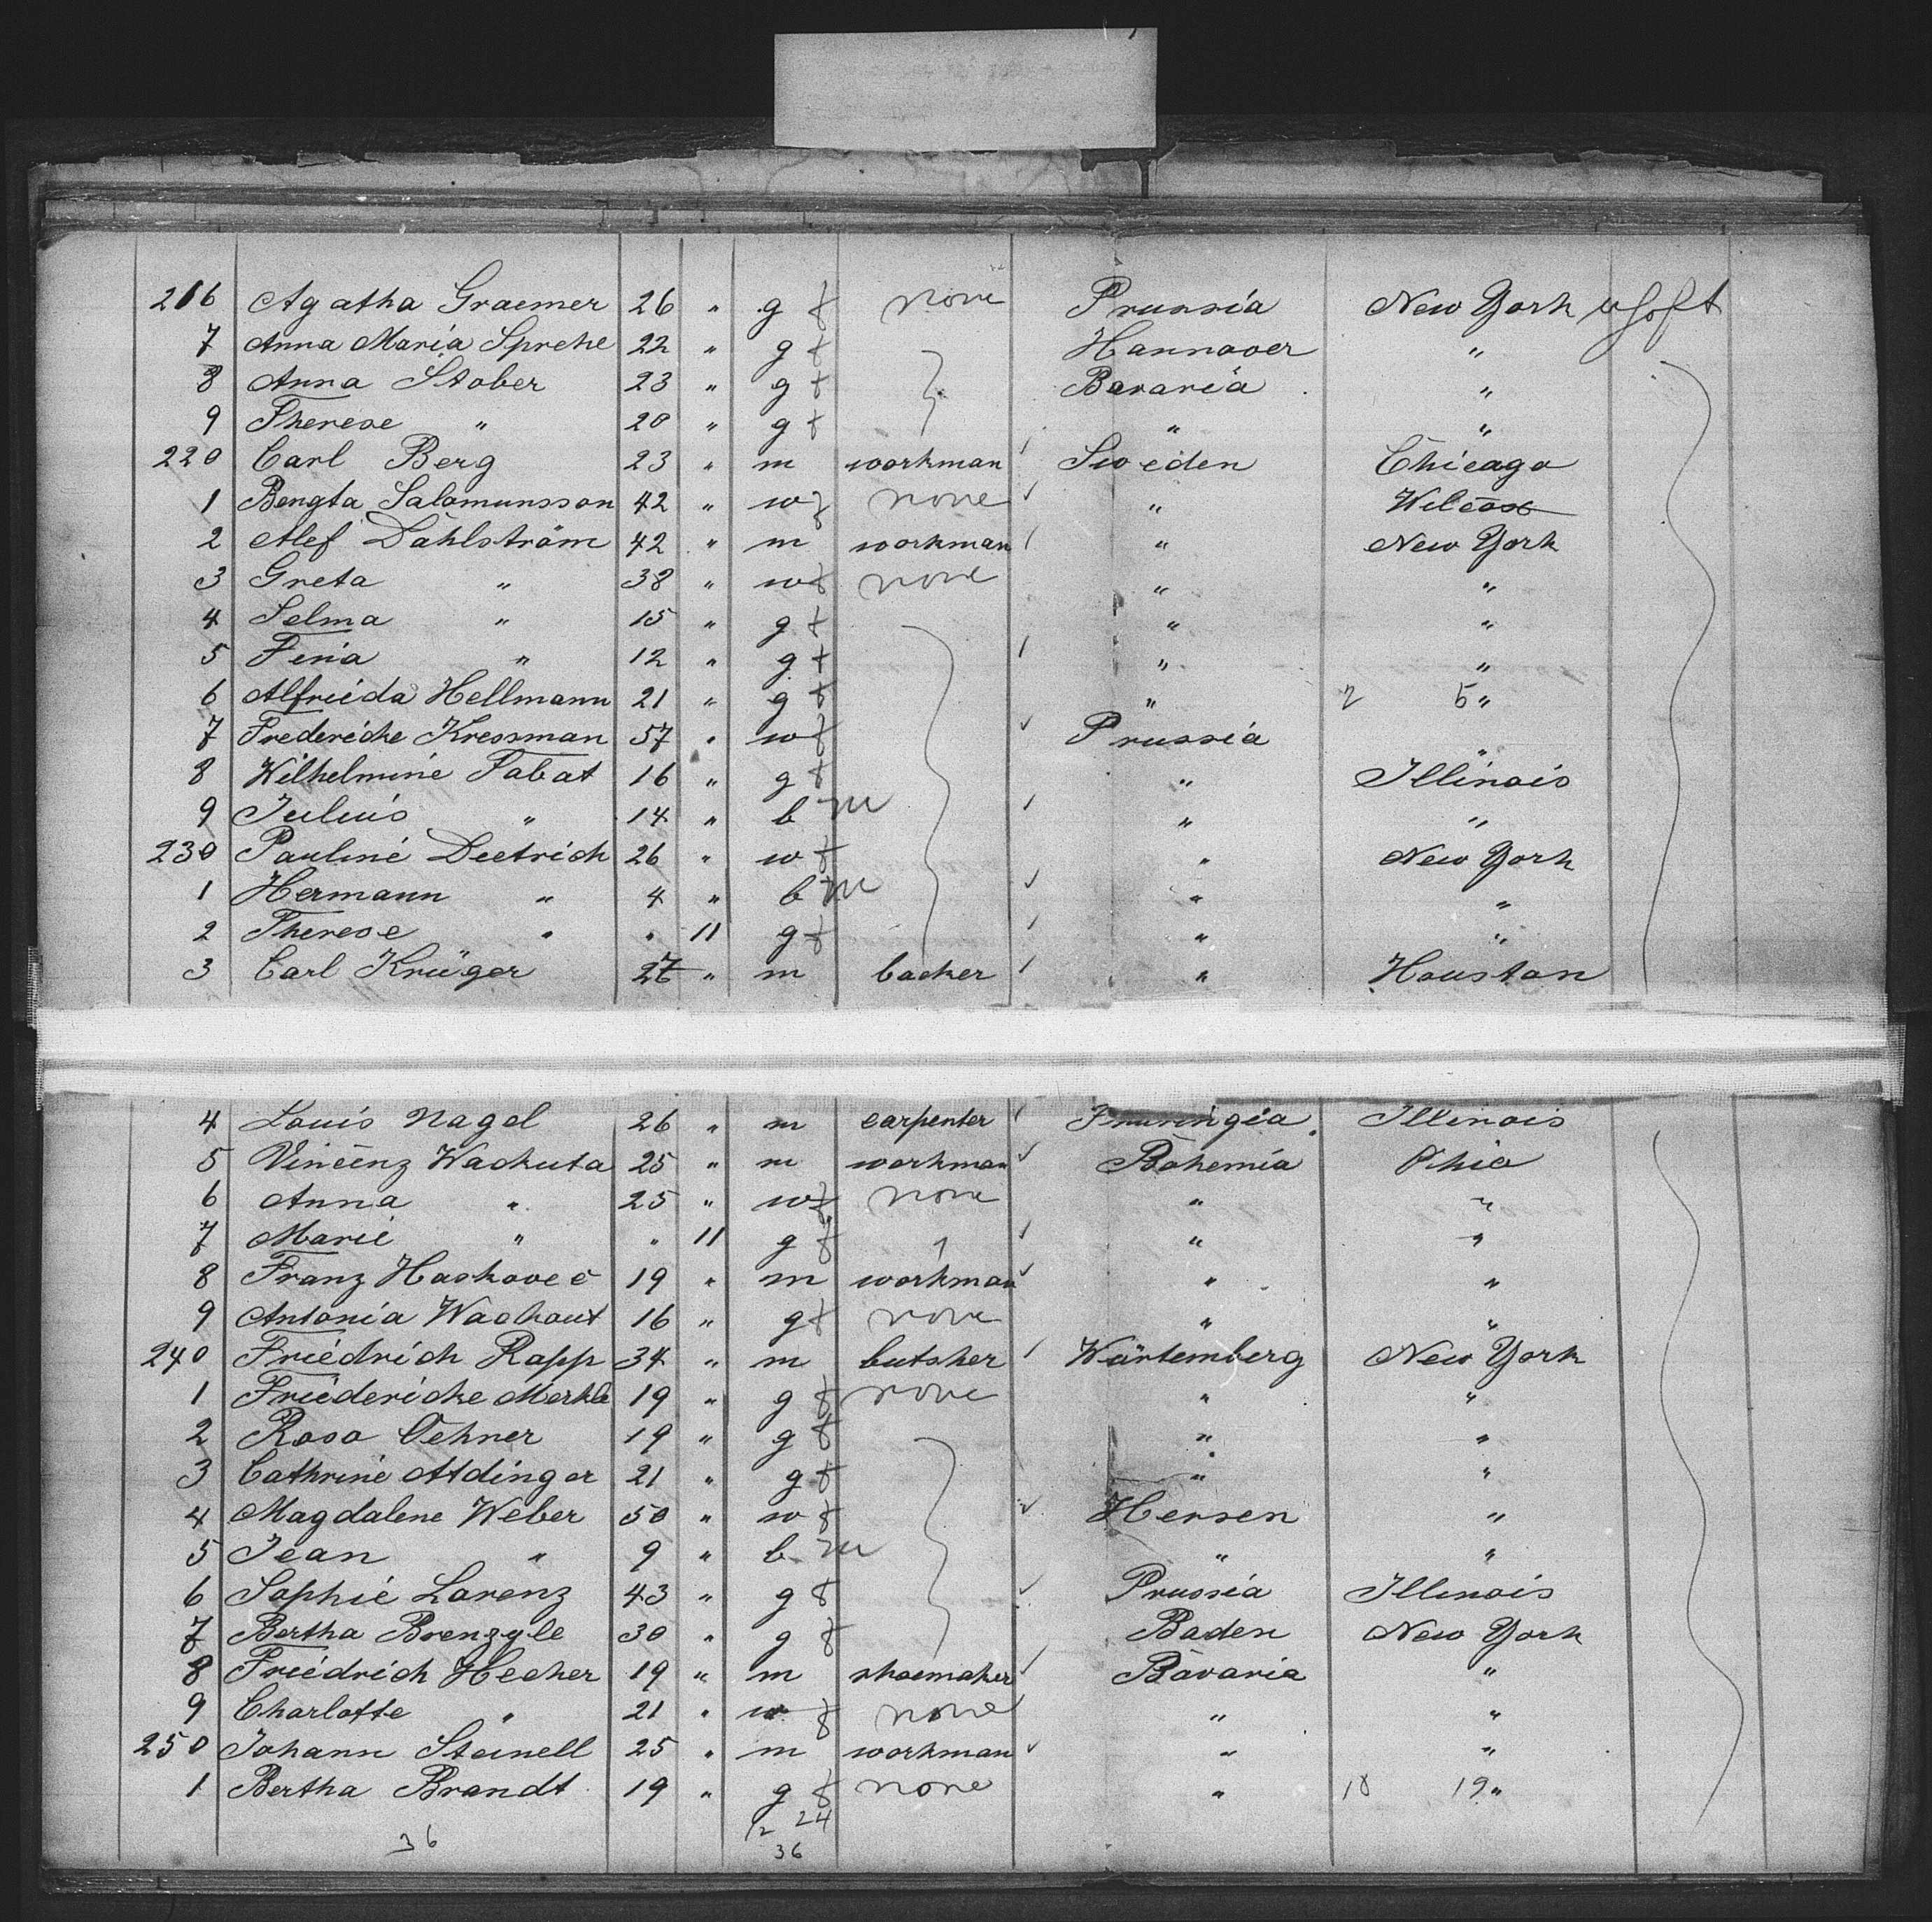 216 Agatha Graemer 26 " g f none Prussia New York
7 Anna Maria Sprehe 22 " g f Hannover "
8 Anna Stober 23 " g f Bavaria "
9 Therese " 20 " g f " "
220 Carl Berg 23 " m workman Sweden Chicago
1 Bengta Salomunsson 42 " w f none " Wilcox
2 Alef Dahlström 42 " m workman " New York
3 Greta " 38 " w f none " "
4 Selma " 15 " g f " "
5 Feria " 12 " g f " "
6 Alfrieda Hellmann 21 " g f " 2 5 "
7 Frederiche Kressman 57 " w f Prussia "
8 Wilhelmine Tabat 16 " g f " Illinois
9 Julius " 14 " b m " "
230 Pauline Dietrich 26 " w f " New York
1 Hermann " 4 " b m " "
2 Therese " " 11 g f " "
3 Carl Krüger 27 " m backer " Houston
4 Louis Nagel 26 " m carpenter Thuringia Illinois
5 Vincenz Wachuta 25 " m workman Bohemia Ohio
6 Anna " 25 " w f none " "
7 Marie " " 11 g f " " "
8 Franz Haskovec 19 " m workman " "
9 Antonia Wachout 16 " g f none " "
240 Friedrich Rapp 34 " m butsher Würtemberg New York
1 Friedericke Merkle 19 " g f none " "
2 Rosa Oehner 19 " g f " "
3 Cathrine Attdinger 21 " g f " "
4 Magdalene Weber 50 " w f Hessen "
5 Jean " 9 " b m " "
6 Sophie Lorenz 43 " g f Prussia Illinois
7 Bertha Brenzyle 30 " g f Baden New York
8 Friedrich Hecher 19 " m shoemaker Bavaria "
9 Charlotte " 21 " w f none " "
250 Johann Steinell 25 " m workman " "
1 Bertha Brandt 19 " g f none " 18 19 "
12 24
36 36